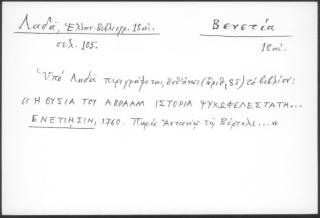 Λαδᾶ, Ἑλλην. Βιβλιογρ. 18 αἰ.
Βενετία
σελ. 105.
18 αἰ.
Ὑπό Λαδᾶ περιγράφεται, (ἀριθ. 85) τό βιβλίον:
«Ἡ ΘΥΣΙΑ ΤΟΥ ΑΒΡΑΑΜ ΙΣΤΟΡΙΑ ΨΥΧΩΦΕΛΕΣΤΑΤΗ...
ΕΝΕΤΙΗΣΙΝ, 1760. Παρά Ἀντωνίῳ τῷ Βόρτολι...»